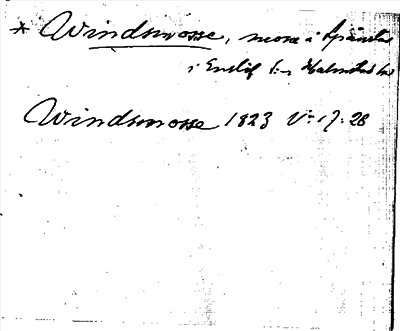 * Windsmosse, mosse i
i Enslöf sn Halmstad hd
Windsmosse 1823 V: 17: 28